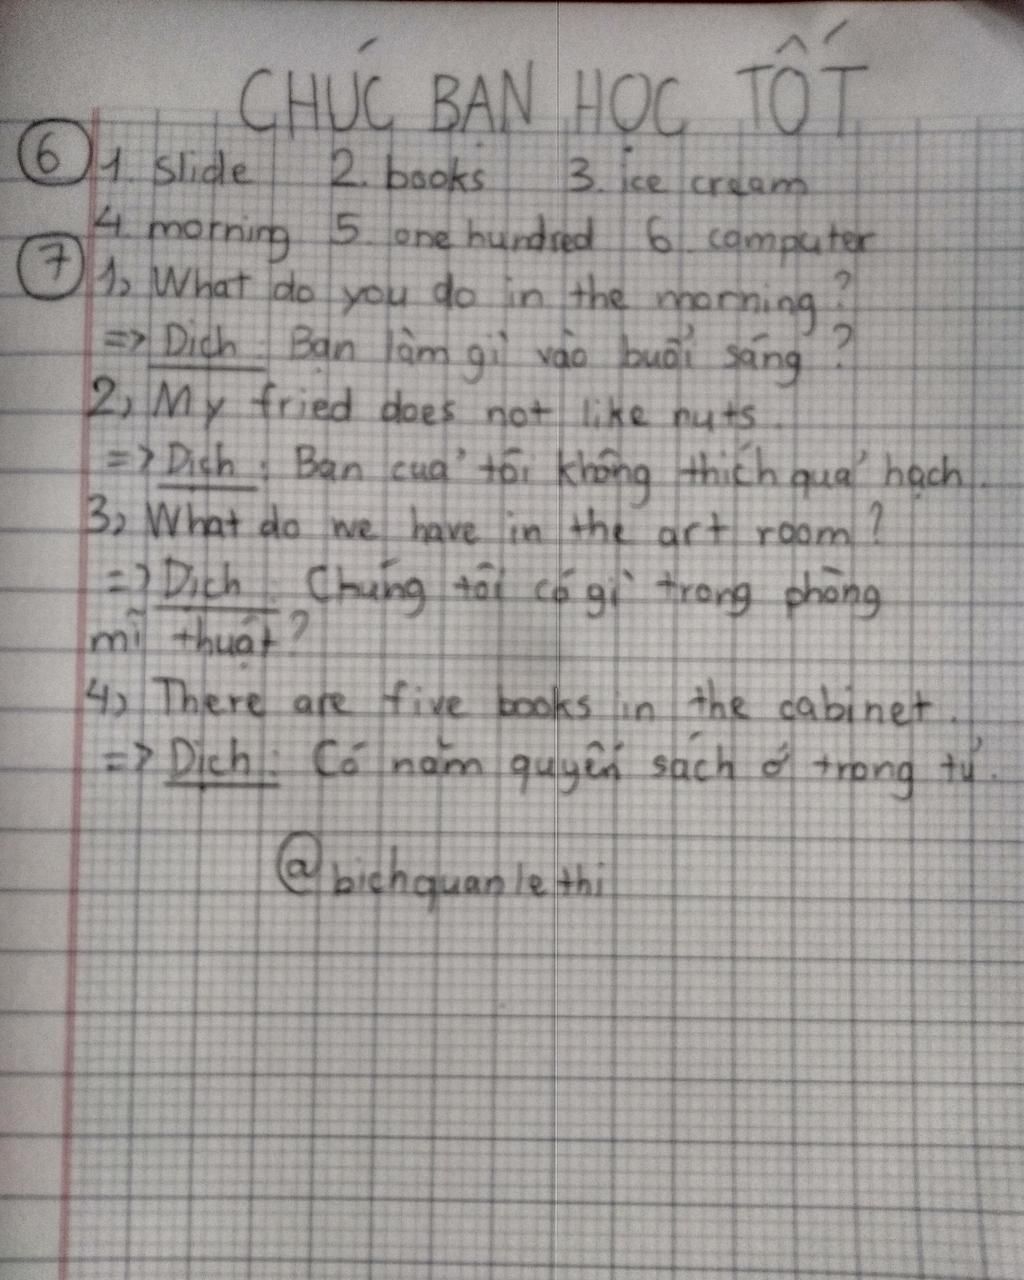 CHÚC BẠN HỌC TỐT
6 1. slide 2. books 3. ice cream
4. morning 5. one hundred 6. computer
7 1, What do you do in the morning?
=> Dịch: Bạn làm gì vào buổi sáng?
2, My fried does not like nuts.
=> Dịch: Bạn của tôi không thích quả hạch.
3, What do we have in the art room?
=> Dịch: Chúng tôi có gì trong phòng
mĩ thuật?
4, There are five books in the cabinet.
=> Dịch: Có năm quyển sách ở trong tủ.
@bichquanlethi